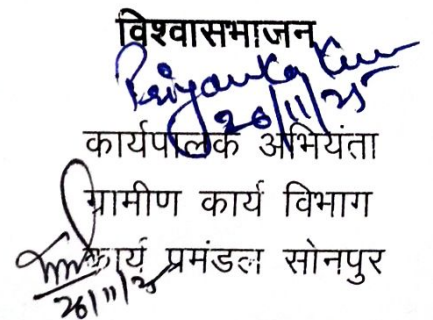 विश्वासभाजन
Priyanka Kum
26/11/25
कार्यपालक अभियंता
ग्रामीण कार्य विभाग
कार्य प्रमंडल सोनपुर
26/11/25